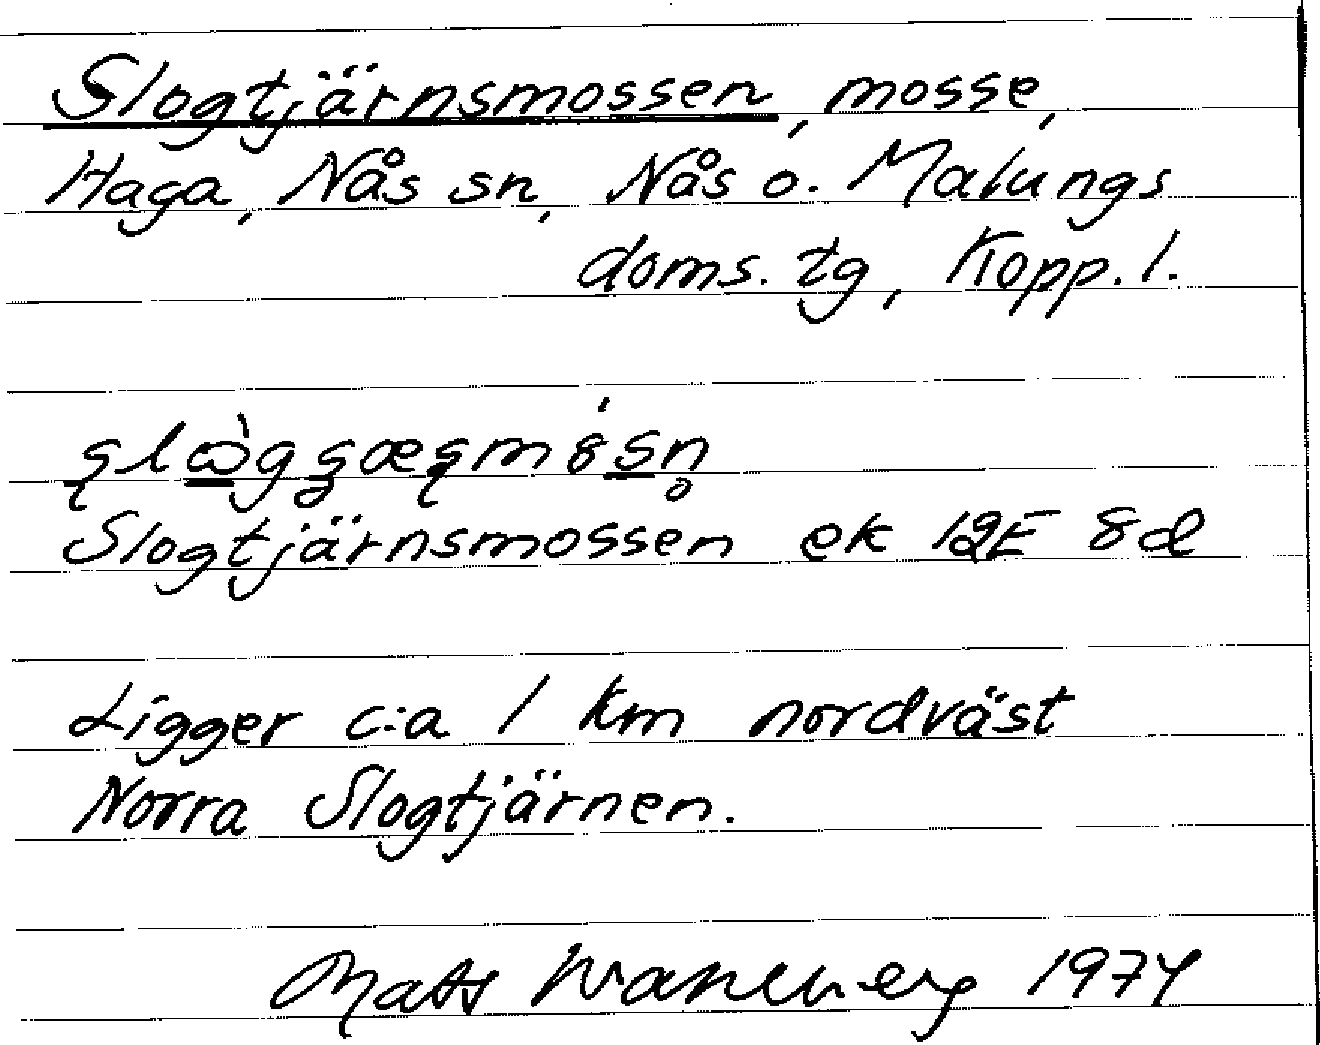 Slogtjärnsmossen, mosse,
Haga, Nås sn, Nås o. Malungs
doms. tg, Kopp. l.
Slogtjärnsmossen ek 12E 8d
Ligger c:a 1 km nordväst
Norra Slogtjärnen.
Mats Wahlberg 1974